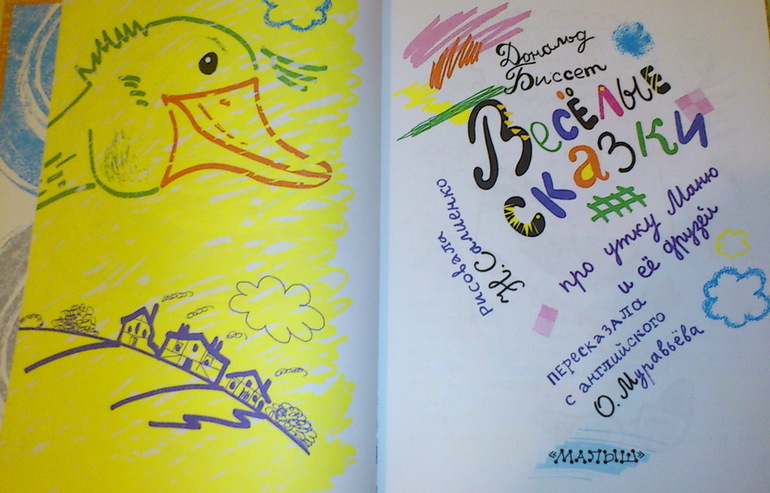 Дональд
Биссет
Весёлые
сказки
про утку Маню
и её друзей
Рисовала
Н. Салиенко
пересказала
с английского
О. Муравьёва
«МАЛЫШ»